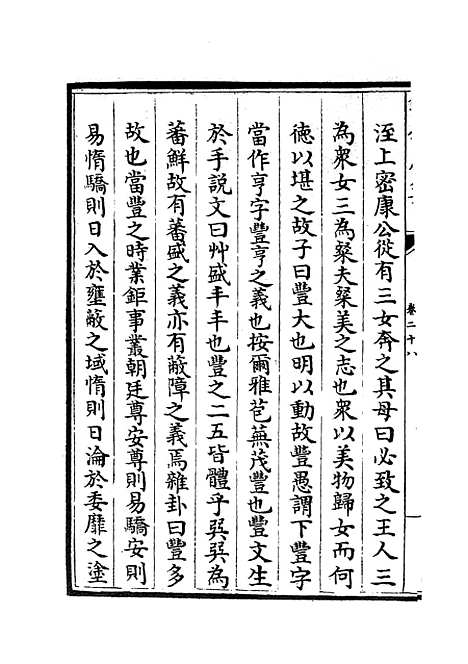 涇上密康公從有三女奔之其母曰必致之王人三
為衆女三為粲夫粲美之志也衆以美物歸女而何
徳以堪之故子曰豐大也明以動故豐愚謂下豐字
當作亨字豐亨之義也按爾雅苞蕪茂豐也豐文生
於手説文曰艸盛丰丰也豐之二五皆體乎巽巽為
蕃鮮故有蕃盛之義亦有蔽障之義焉雜卦曰豐多
故也當豐之時業鉅事叢朝廷尊安尊則易驕安則
易惰驕則日入於壅蔽之域惰則日淪於委靡之塗
卷二十八